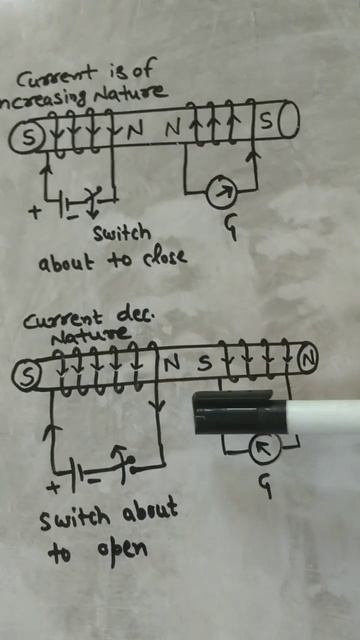 Current is of
ncreasing Nature
S N N S
+ -
G
Switch
about to close
Current dec.
Nature
S N S N
+ -
G
Switch about
to open